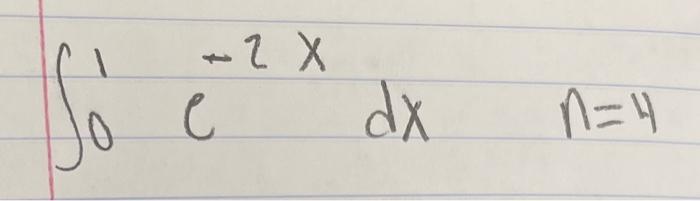 ∫₀¹ e⁻²ˣ dx n=4